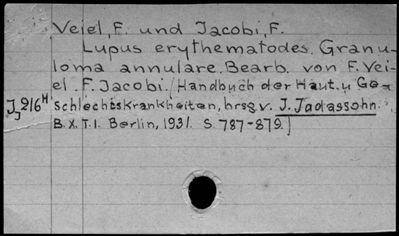 Veiel, F. und Jacobi, F.
Lupus erythematodes. Granu-
loma annulare. Bearb. von F. Vei-
el. F. Jacobi. /Handbuch der Haut. u Ge-
J, 216H schlechtskrankheiten, hrsg v. J. Jadassohn.
B. X. T. I. Berlin, 1931. S. 787-879.]